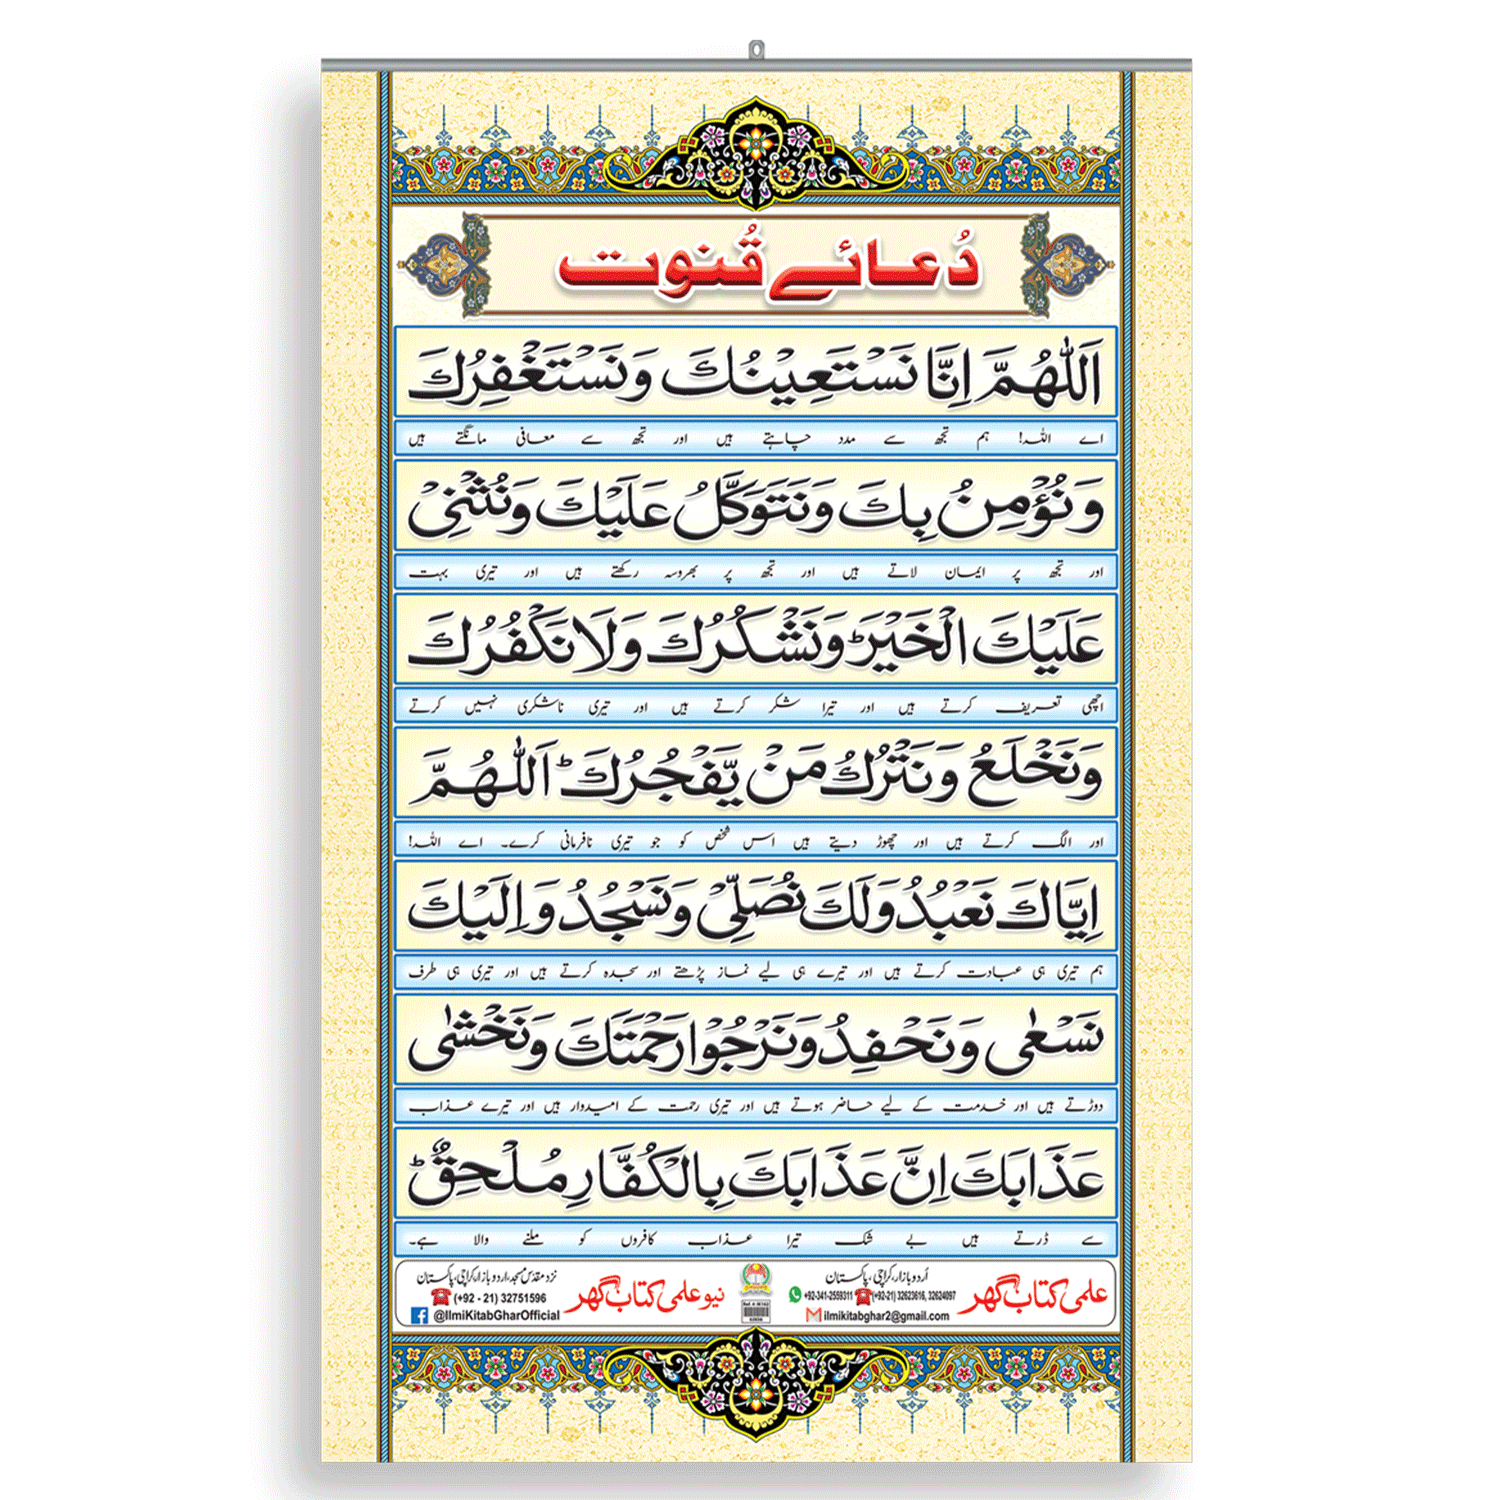 دُعائے قُنوت
اَللّٰهُمَّ اِنَّا نَسْتَعِيْنُكَ وَنَسْتَغْفِرُكَ
اے اللہ! ہم تجھ سے مدد چاہتے ہیں اور تجھ سے معافی مانگتے ہیں
وَنُؤْمِنُ بِكَ وَنَتَوَكَّلُ عَلَيْكَ وَنُثْنِيْ
اور تجھ پر ایمان لاتے ہیں اور تجھ پر بھروسہ رکھتے ہیں اور تیری بہت
عَلَيْكَ الْخَيْرَؕ وَنَشْكُرُكَ وَلَا نَكْفُرُكَ
اچھی تعریف کرتے ہیں اور تیرا شکر کرتے ہیں اور تیری ناشکری نہیں کرتے
وَنَخْلَعُ وَنَتْرُكُ مَنْ يَّفْجُرُكَؕ اَللّٰهُمَّ
اور الگ کرتے ہیں اور چھوڑ دیتے ہیں اس شخص کو جو تیری نافرمانی کرے۔ اے اللہ!
اِيَّاكَ نَعْبُدُ وَلَكَ نُصَلِّيْ وَنَسْجُدُ وَاِلَيْكَ
ہم تیری ہی عبادت کرتے ہیں اور تیرے ہی لیے نماز پڑھتے اور سجدہ کرتے ہیں اور تیری ہی طرف
نَسْعٰى وَنَحْفِدُ وَنَرْجُوْا رَحْمَتَكَ وَنَخْشٰى
دوڑتے ہیں اور خدمت کے لیے حاضر ہوتے ہیں اور تیری رحمت کے امیدوار ہیں اور تیرے عذاب
عَذَابَكَ اِنَّ عَذَابَكَ بِالْكُفَّارِ مُلْحِقٌؕ
سے ڈرتے ہیں بے شک تیرا عذاب کافروں کو ملنے والا ہے۔
علمی کتاب گھر
اُردو بازار، کراچی، پاکستان
+92-341-2559311 (+92-21) 32623616, 32624097
ilmikitabghar2@gmail.com
نیو علمی کتاب گھر
نزد مقدّس مسجد، اردو بازار، کراچی، پاکستان
(+92 - 21) 32751596
@IlmiKitabGharOfficial